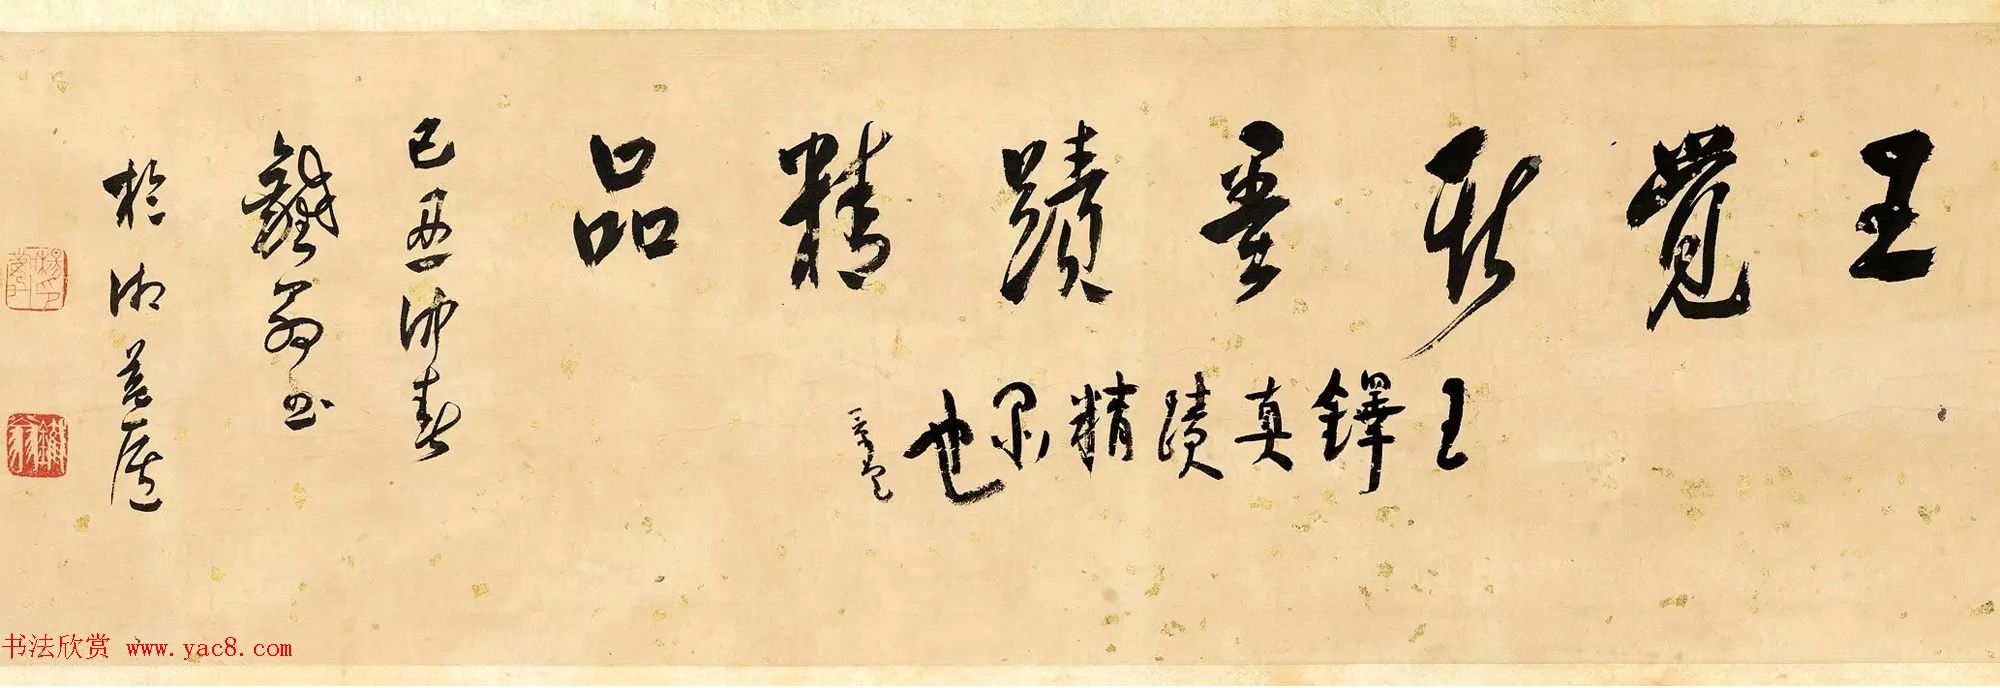 王覺斯墨蹟精品
王鐸真蹟精品也
己丑仲春
鐵翁書
於湖
書法欣赏 www.yac8.com